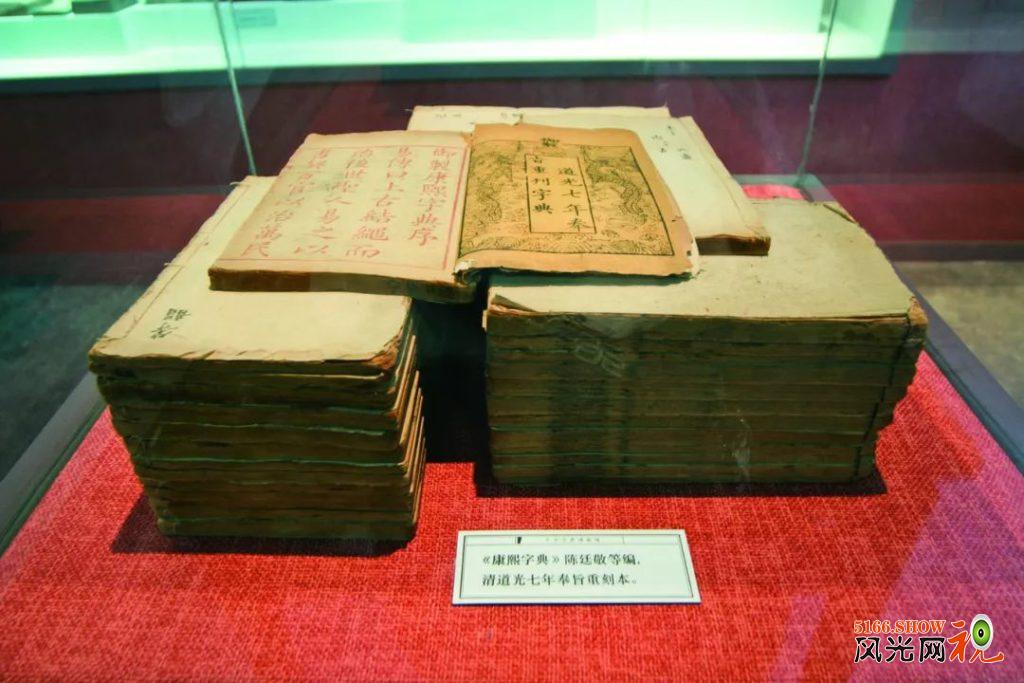 道光七年奉
旨重刊字典
御製康熙字典序
易傳曰上古結繩而
治後世聖人易之以
書契百官以治萬民
《康熙字典》陈廷敬等编,
清道光七年奉旨重刻本。
5166.SHOW
风光网视